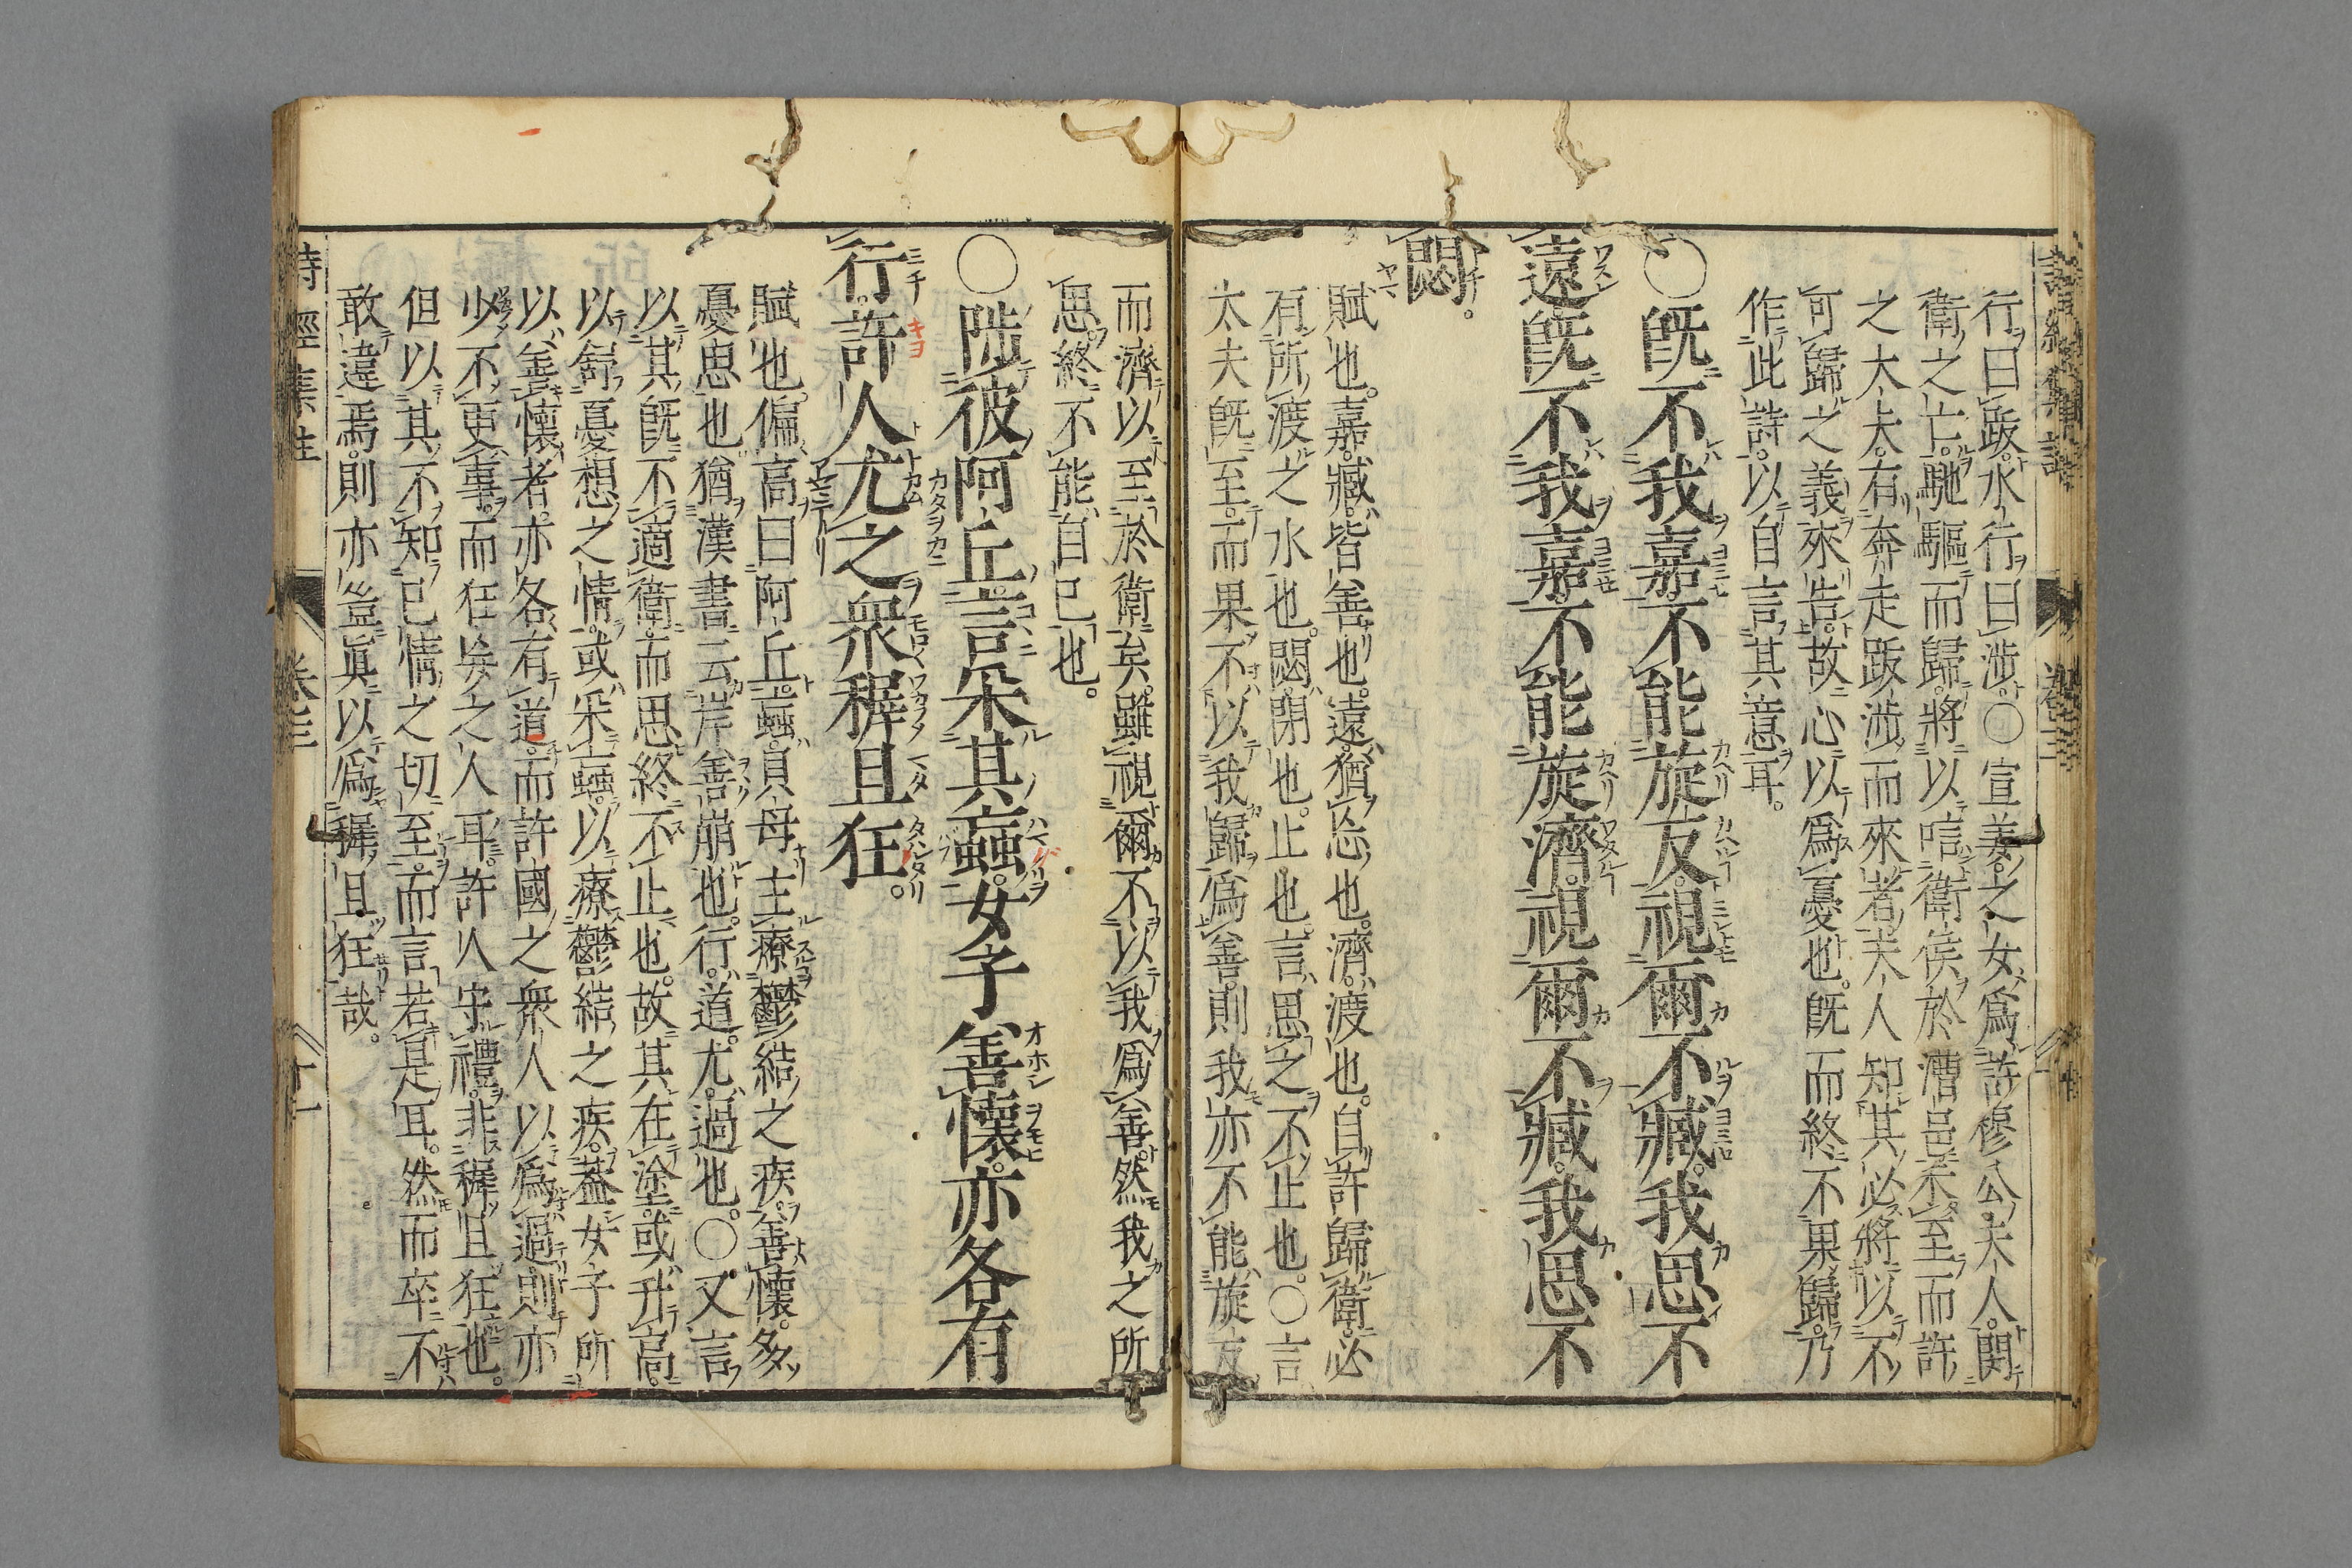 行曰跋水行曰涉○宣姜之女爲許穆公夫人閔
衛之亡馳驅而歸將以唁衛侯於漕邑未至而許
之大夫有奔走跋涉而來者夫人知其必將以不
可歸之義來告故心以爲憂也旣而終不果歸乃
作此詩以自言其意耳
○旣不我嘉不能旋反視爾不臧我思不
遠旣不我嘉不能旋濟視爾不臧我思不
閟
賦也嘉臧皆善也遠猶忘也濟渡也自許歸衛必
有所渡之水也閟閉也止也言思之不止也○言
大夫旣至而果不以我歸爲善則我亦不能旋反
而濟以至於衛矣雖視爾不以我爲善然我之所
思終不能自已也
○陟彼阿丘言采其蝱女子善懷亦各有
行許人尤之衆穉且狂
賦也偏高曰阿丘蝱貝母主療鬱結之疾善懷多
憂思也猶漢書云岸善崩也行道尤過也○又言
以其旣不適衛而思終不止也故其在塗或升高
以舒憂想之情或采蝱以療鬱結之疾蓋女子所
以善懷者亦各有道而許國之衆人以爲過則亦
少不更事而狂妄之人耳許人守禮非穉且狂也
但以其不知已情之切至而言若是耳然而卒不
敢違焉則亦豈眞以爲穉且狂哉
詩經集註 卷三 十一